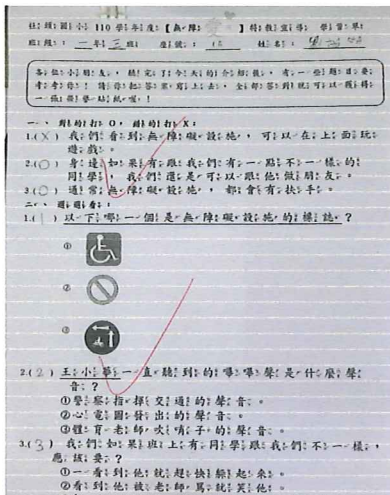 社頭國小 110 學年度【無障愛】特教宣導 學習單
班級：一年三班 座號：12 姓名：
各位小朋友，聽完了今天的介紹後，有一些題目要
考考你！請你把答案寫上去，全部答對就可以獲得
一張榮譽貼紙喔！
一、對的打O，錯的打X：
1.(X) 我們看到無障礙設施，可以在上面玩
遊戲。
2.(O) 身邊如果有跟我們有一點不一樣的
同學，我們還是可以跟他做朋友。
3.(O) 通常無障礙設施，都會有扶手。
二、選選看：
1.(1) 以下哪一個是無障礙設施的標誌？
①
②
③
2.(2) 王小華一直聽到的嗶嗶聲是什麼聲
音？
①警察指揮交通的聲音。
②心電圖發出的聲音。
③體育老師吹哨子的聲音。
3.(3) 我們如果班上有同學跟我們不一樣，
應該要？
①一看到他就趕快躲起來。
②看到他被老師罵就笑他。